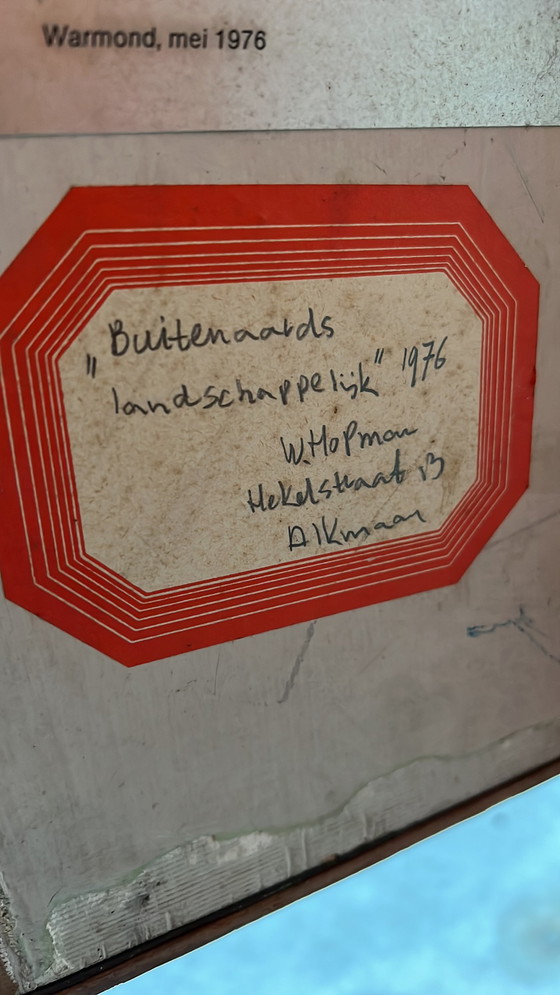 Warmond, mei 1976
„Buitenaards
landschappelijk" 1976
W. Hopman
Hekelstraat 13
Alkmaar